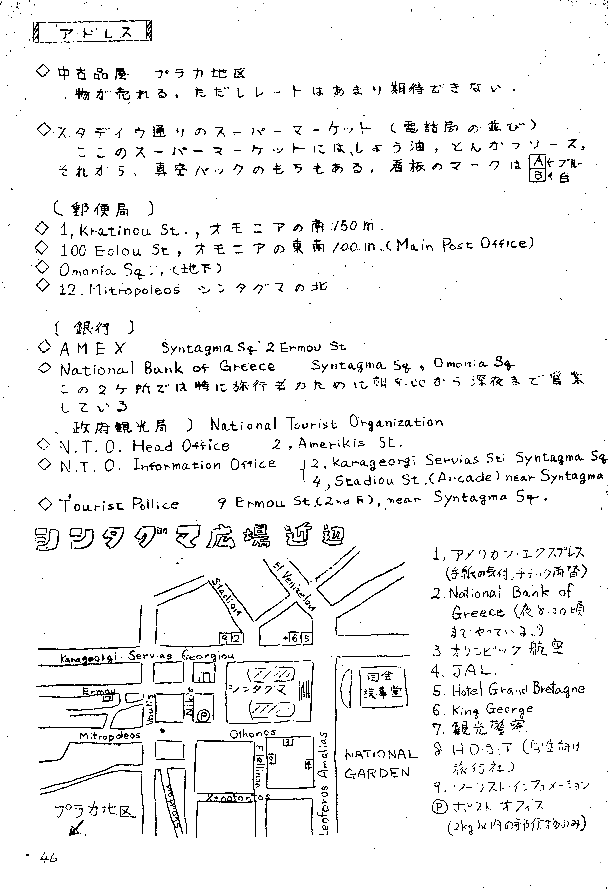 アドレス
◇ 中古品屋 プラカ地区
物が売れる。ただしレートはあまり期待できない.
◇ スタディウ通りのスーパーマーケット (電話局の並び)
ここのスーパーマーケットには、しょう油, とんかつソース,
それから、真空パックのもちもある。看板のマークは A B ブルー 白
[ 郵便局 ]
◇ 1, Kratinou St., オモニアの南150m.
◇ 100 Eolou St, オモニアの東南100m.(Main Post Office)
◇ Omonia Sq., (地下)
◇ 12. Mitropoleos シンタグマの北
[ 銀行 ]
◇ AMEX Syntagma Sq 2 Ermou St
◇ National Bank of Greece Syntagma Sq, Omonia Sq
この2ヶ所では特に旅行者のために朝8:00から深夜まで営業
している
政府観光局 ) National Tourist Organization
◇ N.T.O. Head Office 2, Amerikis St.
◇ N.T.O. Information Office 2, Karageorgi Servias St. Syntagma Sq
4, Stadiou St.(Arcade) near Syntagma
◇ Tourist Pollice 9 Ermou St.(2nd F), near Syntagma Sq.
シンタグマ広場近辺
Stadiou
El Venizelou
9 2
6 5
Karageorgi Servias Georgiou
シンタグマ
国会
議事堂
Ermou
Voulis
P
Mitropoleos
Othonos
Filellinon
3
8
4
Leoforos Amalias
NATIONAL
GARDEN
Xenofontos
プラカ地区
1, アメリカン・エクスプレス
(手紙の受付, チェック両替)
2. National Bank of
Greece (夜8:00頃
までやっている。)
3 オリンピック航空
4. JAL.
5. Hotel Grand Bretagne
6. King George
7. 観光警察
8 H.O.S.T (学生向け
旅行社)
9. ツーリスト・インフォメーション
P ポスト オフィス
46